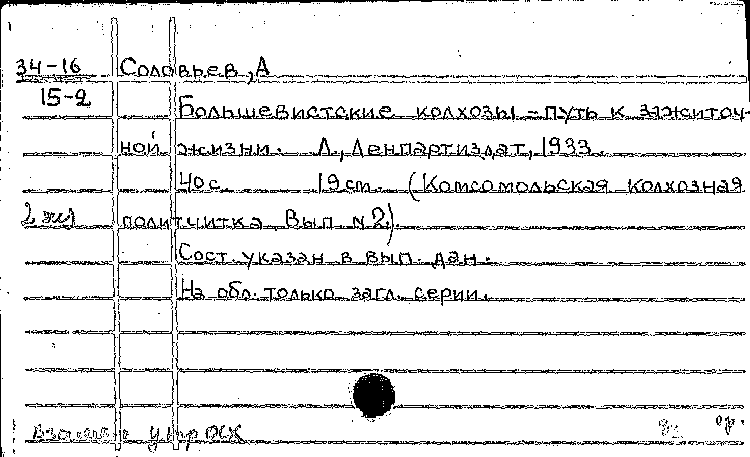 34-16 Соловьев, А
15-2
Большевистские колхозы - путь к зажиточ-
ной жизни. Л., Ленпартиздат, 1933.
40 с. 19 cm. (Комсомольская колхозная
2 экз политчитка Вып № 2).
Сост. указан в вып. дан.
На обл. только загл. серии.
ор.